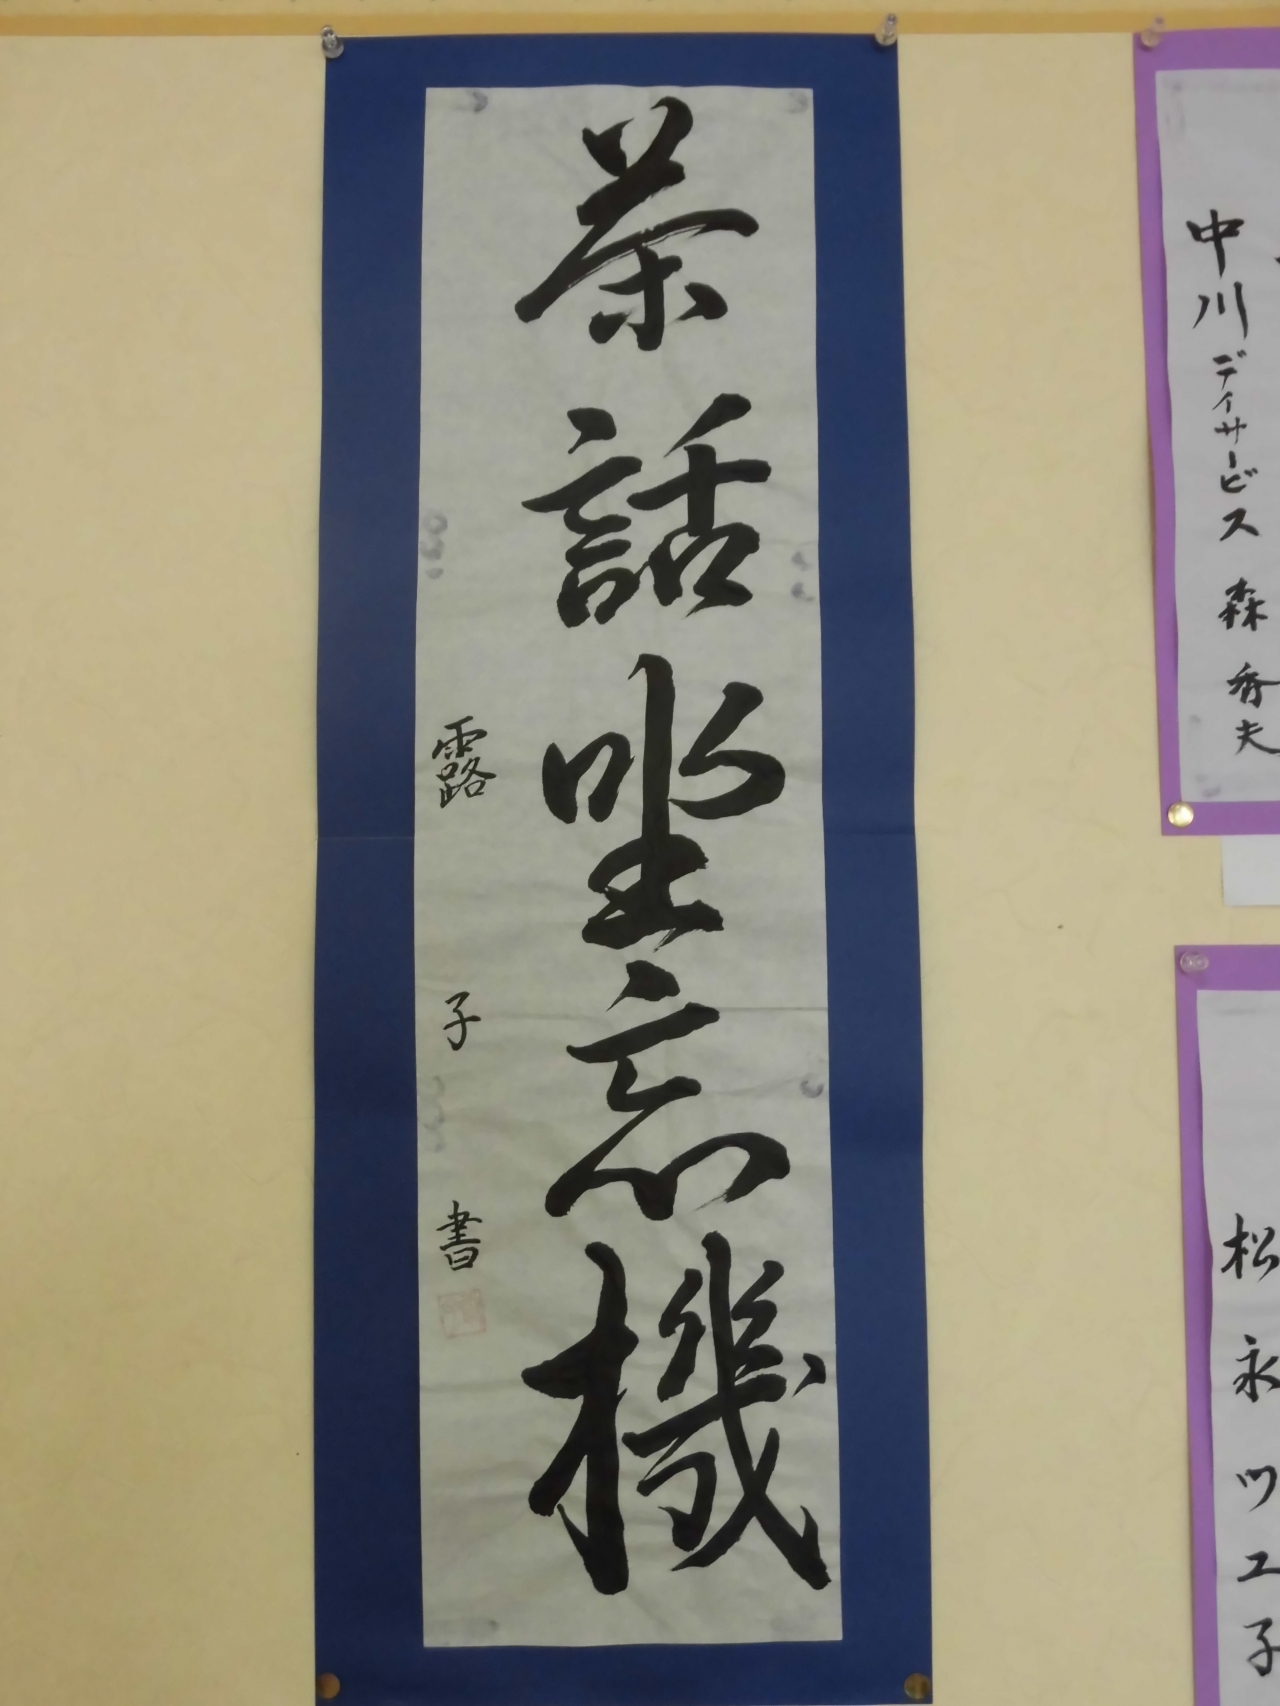 茶話坐忘機
露子書
中川デイサービス 森秀夫
松永ツユ子